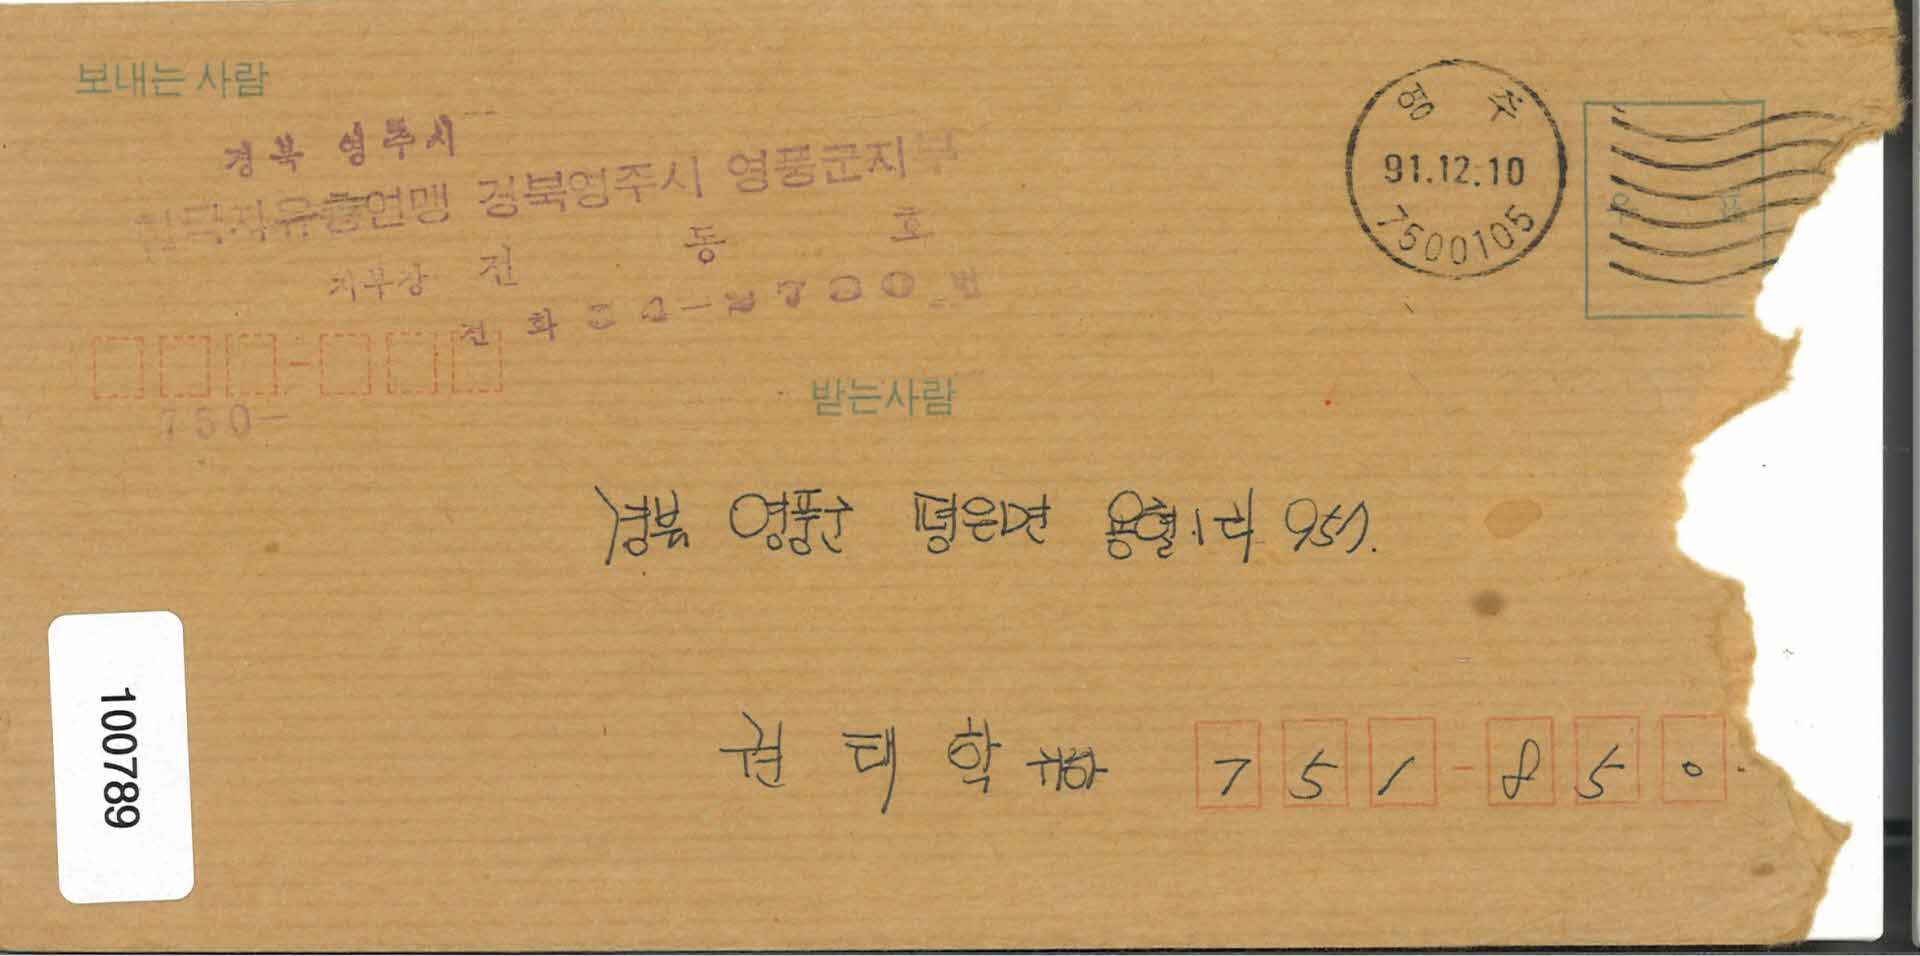 보내는 사람
경북 영주시
한국자유총연맹 경북영주시 영풍군지부
지부장 전 동 호
전 화 2700 번
750-
영 주
91.12.10
7500105
우 표
받는사람
경북 영풍군 평은면 용혈1리 957.
권 태 학 귀하
751-850
100789